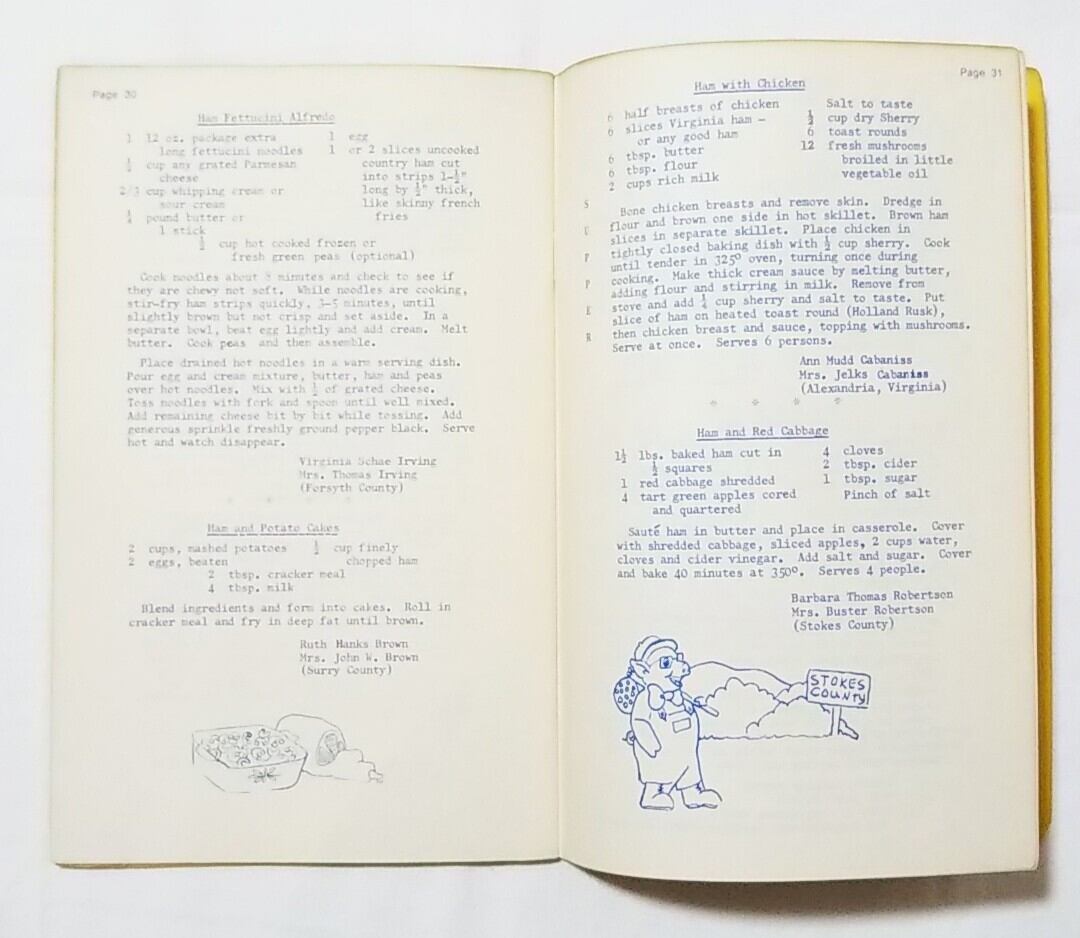 Page 30
Ham Fettucini Alfredo
1 12 oz. package extra
long fettucini noodles
½ cup any grated Parmesan
cheese
2/3 cup whipping cream or
sour cream
¼ pound butter or
1 stick
1 egg
1 or 2 slices uncooked
country ham cut
into strips 1-½"
long by ½" thick,
like skinny french
fries
½ cup hot cooked frozen or
fresh green peas (optional)
Cook noodles about 8 minutes and check to see if
they are chewy not soft. While noodles are cooking,
stir-fry ham strips quickly, 3-5 minutes, until
slightly brown but not crisp and set aside. In a
separate bowl, beat egg lightly and add cream. Melt
butter. Cook peas and then assemble.
Place drained hot noodles in a warm serving dish.
Pour egg and cream mixture, butter, ham and peas
over hot noodles. Mix with ½ of grated cheese.
Toss noodles with fork and spoon until well mixed.
Add remaining cheese bit by bit while tossing. Add
generous sprinkle freshly ground pepper black. Serve
hot and watch disappear.
Virginia Schae Irving
Mrs. Thomas Irving
(Forsyth County)
* * * *
Ham and Potato Cakes
2 cups, mashed potatoes
2 eggs, beaten
½ cup finely
chopped ham
2 tbsp. cracker meal
4 tbsp. milk
Blend ingredients and form into cakes. Roll in
cracker meal and fry in deep fat until brown.
Ruth Hanks Brown
Mrs. John W. Brown
(Surry County)
Page 31
Ham with Chicken
6 half breasts of chicken
6 slices Virginia ham -
or any good ham
6 tbsp. butter
6 tbsp. flour
2 cups rich milk
Salt to taste
½ cup dry Sherry
6 toast rounds
12 fresh mushrooms
broiled in little
vegetable oil
SUPPER
Bone chicken breasts and remove skin. Dredge in
flour and brown one side in hot skillet. Brown ham
slices in separate skillet. Place chicken in
tightly closed baking dish with ½ cup sherry. Cook
until tender in 325° oven, turning once during
cooking. Make thick cream sauce by melting butter,
adding flour and stirring in milk. Remove from
stove and add ¼ cup sherry and salt to taste. Put
slice of ham on heated toast round (Holland Rusk),
then chicken breast and sauce, topping with mushrooms.
Serve at once. Serves 6 persons.
Ann Mudd Cabaniss
Mrs. Jelks Cabaniss
(Alexandria, Virginia)
* * * *
Ham and Red Cabbage
1½ lbs. baked ham cut in
½ squares
1 red cabbage shredded
4 tart green apples cored
and quartered
4 cloves
2 tbsp. cider
1 tbsp. sugar
Pinch of salt
Sauté ham in butter and place in casserole. Cover
with shredded cabbage, sliced apples, 2 cups water,
cloves and cider vinegar. Add salt and sugar. Cover
and bake 40 minutes at 350°. Serves 4 people.
Barbara Thomas Robertson
Mrs. Buster Robertson
(Stokes County)
STOKES
COUNTY